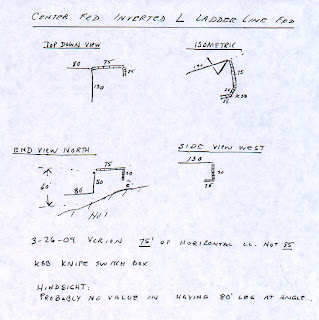 CENTER FED INVERTED L LADDER LINE FED
TOP DOWN VIEW
80
75
25
130
ISOMETRIC
130
75
20
25
KSB
END VIEW NORTH
75
20
60'
50
80
6'
Hill
SIDE VIEW WEST
130
20
25
3-26-09 VERION 75' OF HORIZONTAL LL. NOT 85
KSB KNIFE SWITCH BOX
HINDSEIGHT:
PROBABLY NO VALUE IN HAVING 80' LEG AT ANGLE...